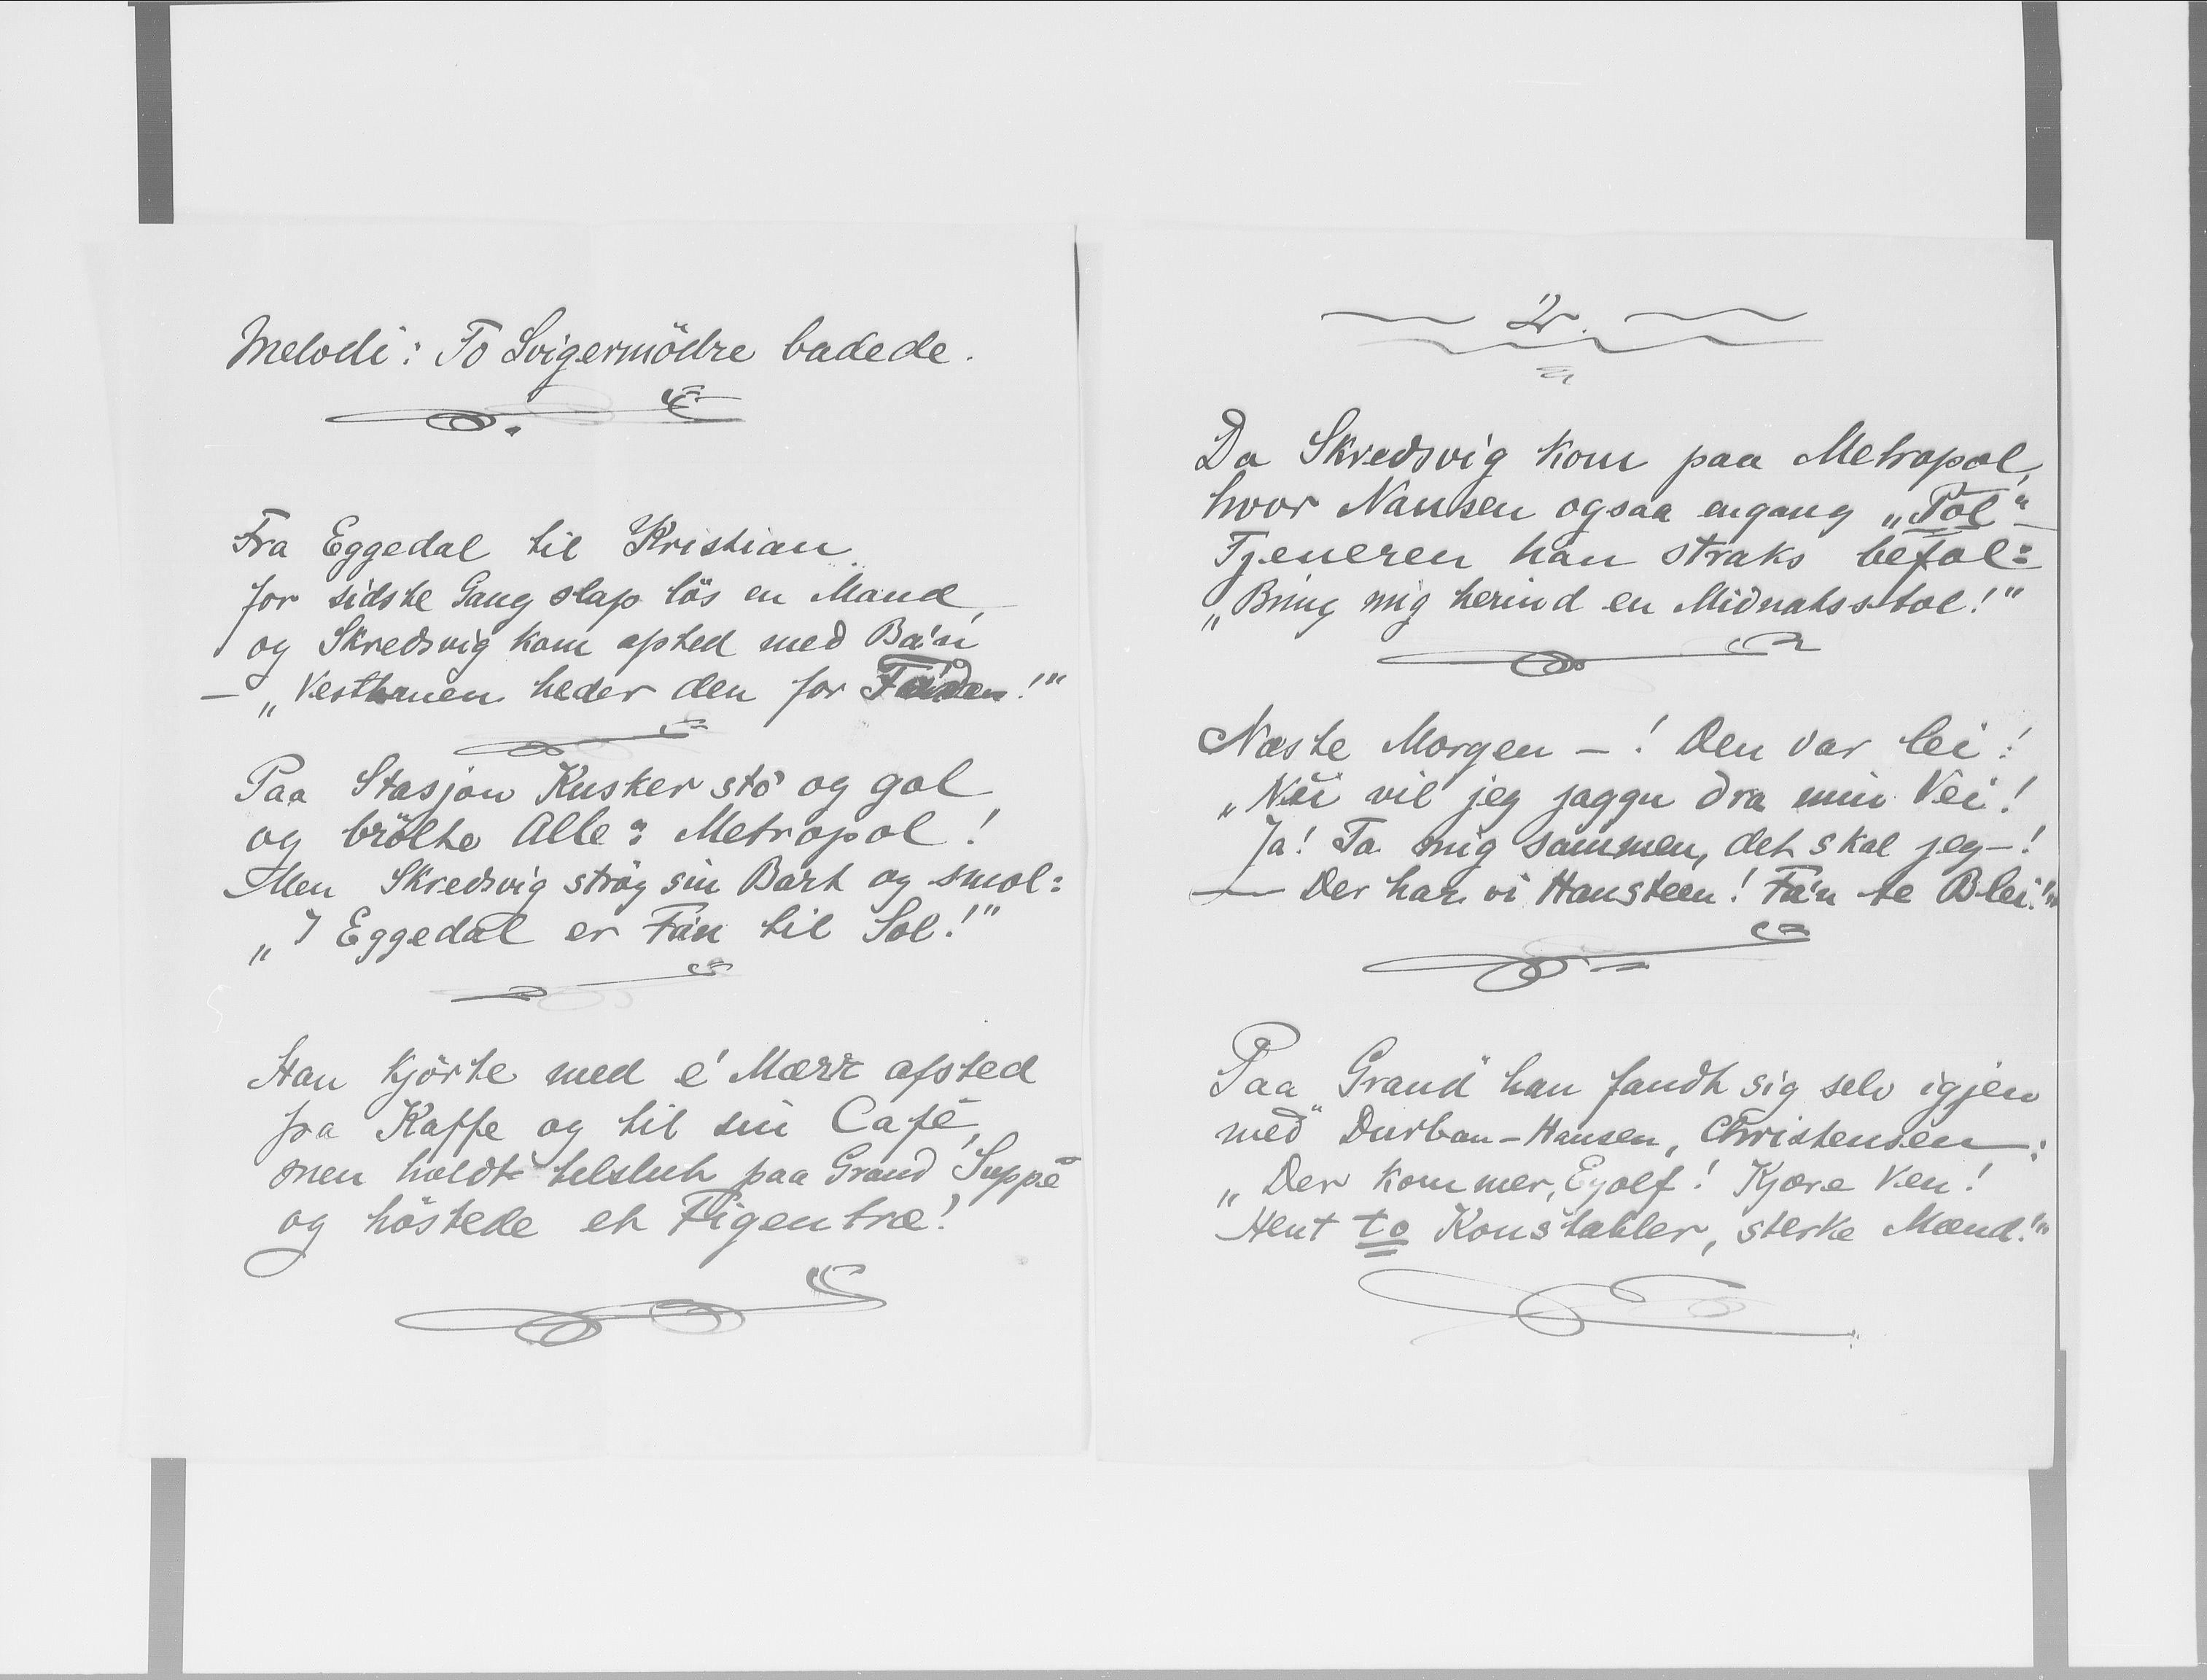 Melodi: To Svigermödre badede.
Fra Eggedal til Kristian
for sidste Gang slap lös en Mand,
og Skredsvig kom afsted med Ba'n
— „Vestbanen heder den for Fanden!"
Paa Stasjon Kusker sto og gol
og brölte Alle: Metropol!
Men Skredsvig strög sin Bart og smol:
„I Eggedal er Fan til Sol!"
Han kjörte med e' Mærr afsted
fra Kaffe og til sin Café,
men holdt tilslut paa Grand Suppé
og höstede et Figentræ!
2.
Da Skredsvig kom paa Metropol,
hvor Nansen ogsaa engang „Pol"
Tjeneren han straks befol:
„Bring mig herind en Midnatssol!"
Næste Morgen —! Den var lei!
„Nu vil jeg jaggu dra min Vei!
Ja! Ta mig sammen, det skal jeg—!
— Der har vi Hansteen! Fa'n te Blei!"
Paa „Grand" han fandt sig selv igjen
med Durban-Hansen, Christensen—:
„Der kommer, Eyolf! Kjære Ven!
Hent to Konstabler, sterke Mænd!"